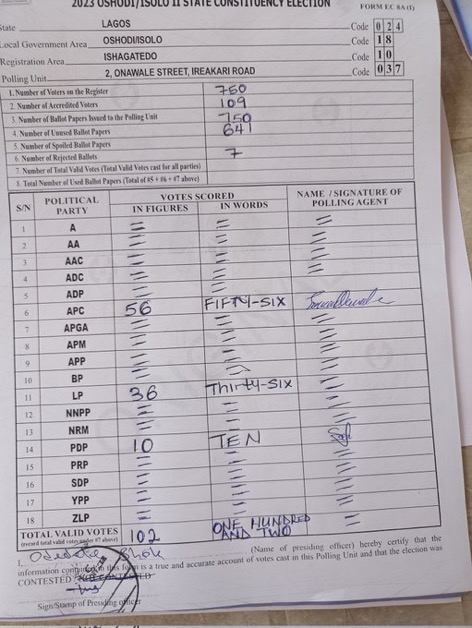 2023 OSHODI/ISOLO II STATE CONSTITUENCY ELECTION
FORM EC 8A (I)
State LAGOS Code 0 2 4
Local Government Area OSHODI/ISOLO Code 1 8
Registration Area ISHAGATEDO Code 1 0
Polling Unit 2, ONAWALE STREET, IREAKARI ROAD Code 0 3 7
1. Number of Voters on the Register 750
2. Number of Accredited Voters 109
3. Number of Ballot Papers Issued to the Polling Unit 750
4. Number of Unused Ballot Papers 641
5. Number of Spoiled Ballot Papers
6. Number of Rejected Ballots 7
7. Number of Total Valid Votes (Total Valid Votes cast for all parties)
8. Total Number of Used Ballot Papers (Total of #5 + #6 + #7 above)
S/N POLITICAL PARTY VOTES SCORED NAME / SIGNATURE OF POLLING AGENT
IN FIGURES IN WORDS
1 A
2 AA
3 AAC
4 ADC
5 ADP
6 APC 56 FIFTY-SIX
7 APGA
8 APM
9 APP
10 BP
11 LP 36 Thirty-SIX
12 NNPP
13 NRM
14 PDP 10 TEN
15 PRP
16 SDP
17 YPP
18 ZLP
TOTAL VALID VOTES 102 ONE HUNDRED AND TWO
(record total valid votes under #7 above)
I, (Name of presiding officer) hereby certify that the
information contained in this form is a true and accurate account of votes cast in this Polling Unit and that the election was
CONTESTED / NOT CONTESTED
Sign/Stamp of Presiding officer